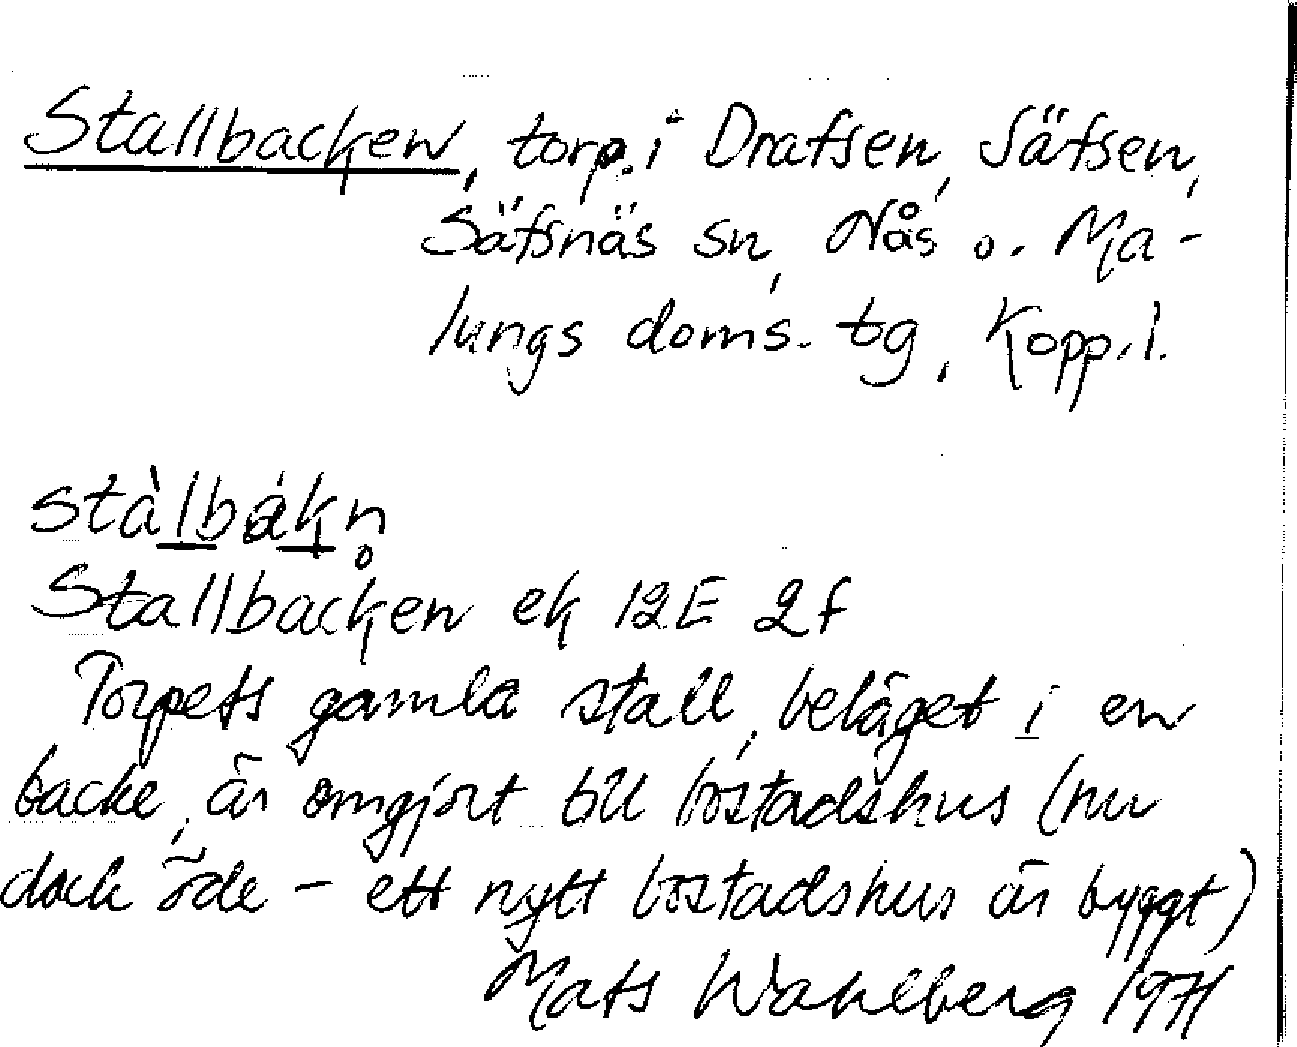 Stallbacken, torp. i Drafsen, Säfsen,
Säfsnäs sn, Nås o. Ma-
lungs doms. tg, Kopp. l.
stàlbákn̥
Stallbacken ek 12E 2f
Torpets gamla stall, beläget i en
backe, är omgjort till bostadshus (nu
dock öde - ett nytt bostadshus är byggt)
Mats Wahlberg 1971